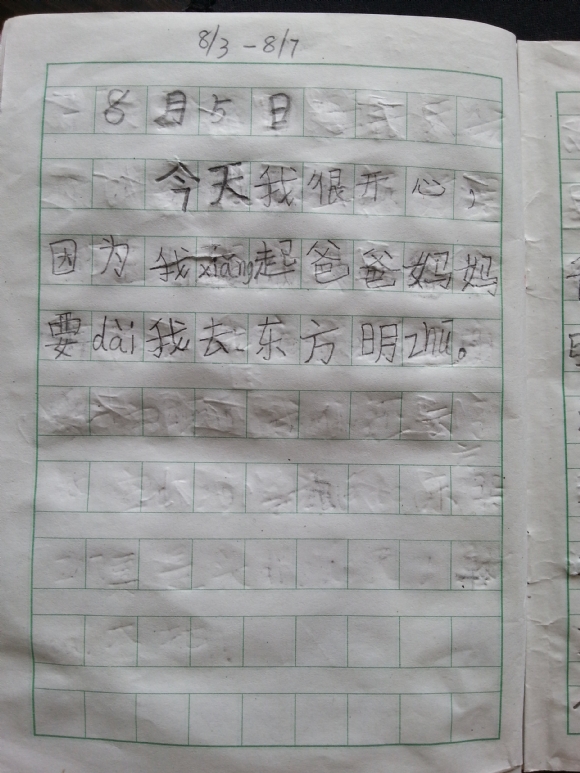 8/3-8/7
8月5日
今天我很开心，
因为我xiǎng起爸爸妈妈
要dài我去东方明zhū。